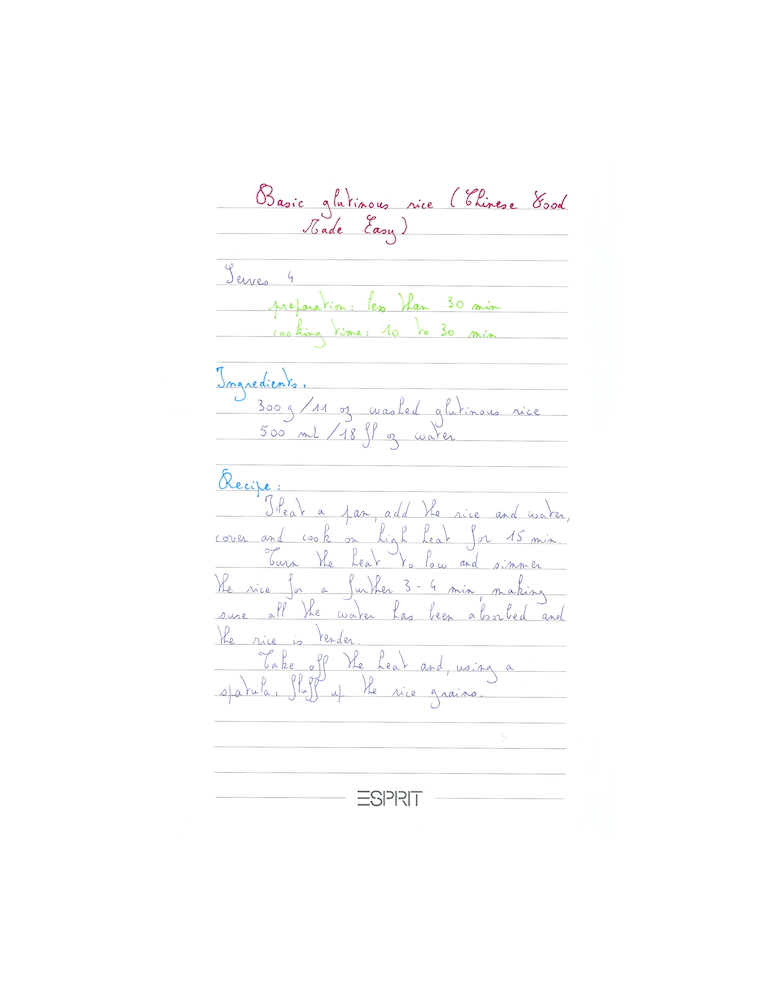 Basic glutinous rice (Chinese Food
Made Easy)
Serves 4
preparation: less than 30 min
cooking time: 10 to 30 min
Ingredients.
300 g/11 oz washed glutinous rice
500 mL/18 fl oz water
Recipe:
Heat a pan, add the rice and water,
cover and cook on high heat for 15 min.
Turn the heat to low and simmer
the rice for a further 3-4 min, making
sure all the water has been absorbed and
the rice is tender.
Take off the heat and, using a
spatula, fluff up the rice grains.
ESPRIT